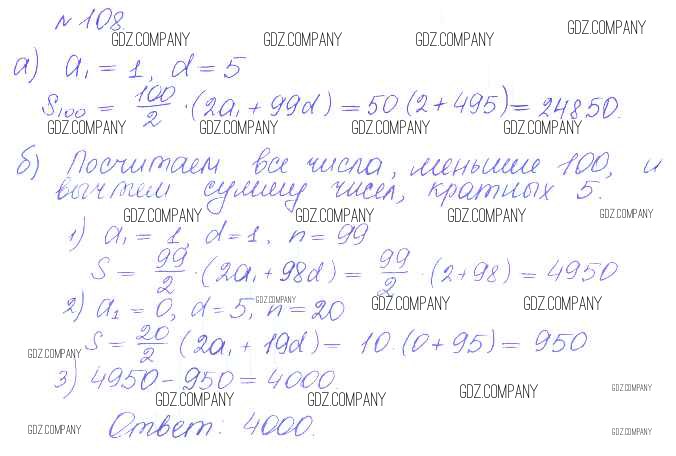 № 108.
GDZ.COMPANY GDZ.COMPANY GDZ.COMPANY GDZ.COMPANY
а) a₁ = 1, d = 5
S₁₀₀ = 100/2 · (2a₁ + 99d) = 50 (2 + 495) = 24850.
GDZ.COMPANY GDZ.COMPANY GDZ.COMPANY GDZ.COMPANY
б) Посчитаем все числа, меньшие 100, и
вычтем сумму чисел, кратных 5.
GDZ.COMPANY GDZ.COMPANY GDZ.COMPANY GDZ.COMPANY
1) a₁ = 1, d = 1, n = 99
S = 99/2 · (2a₁ + 98d) = 99/2 · (2 + 98) = 4950
GDZ.COMPANY GDZ.COMPANY GDZ.COMPANY
2) a₁ = 0, d = 5, n = 20
S = 20/2 (2a₁ + 19d) = 10 · (0 + 95) = 950
GDZ.COMPANY
3) 4950 - 950 = 4000.
GDZ.COMPANY GDZ.COMPANY GDZ.COMPANY GDZ.COMPANY
Ответ: 4000.
GDZ.COMPANY GDZ.COMPANY